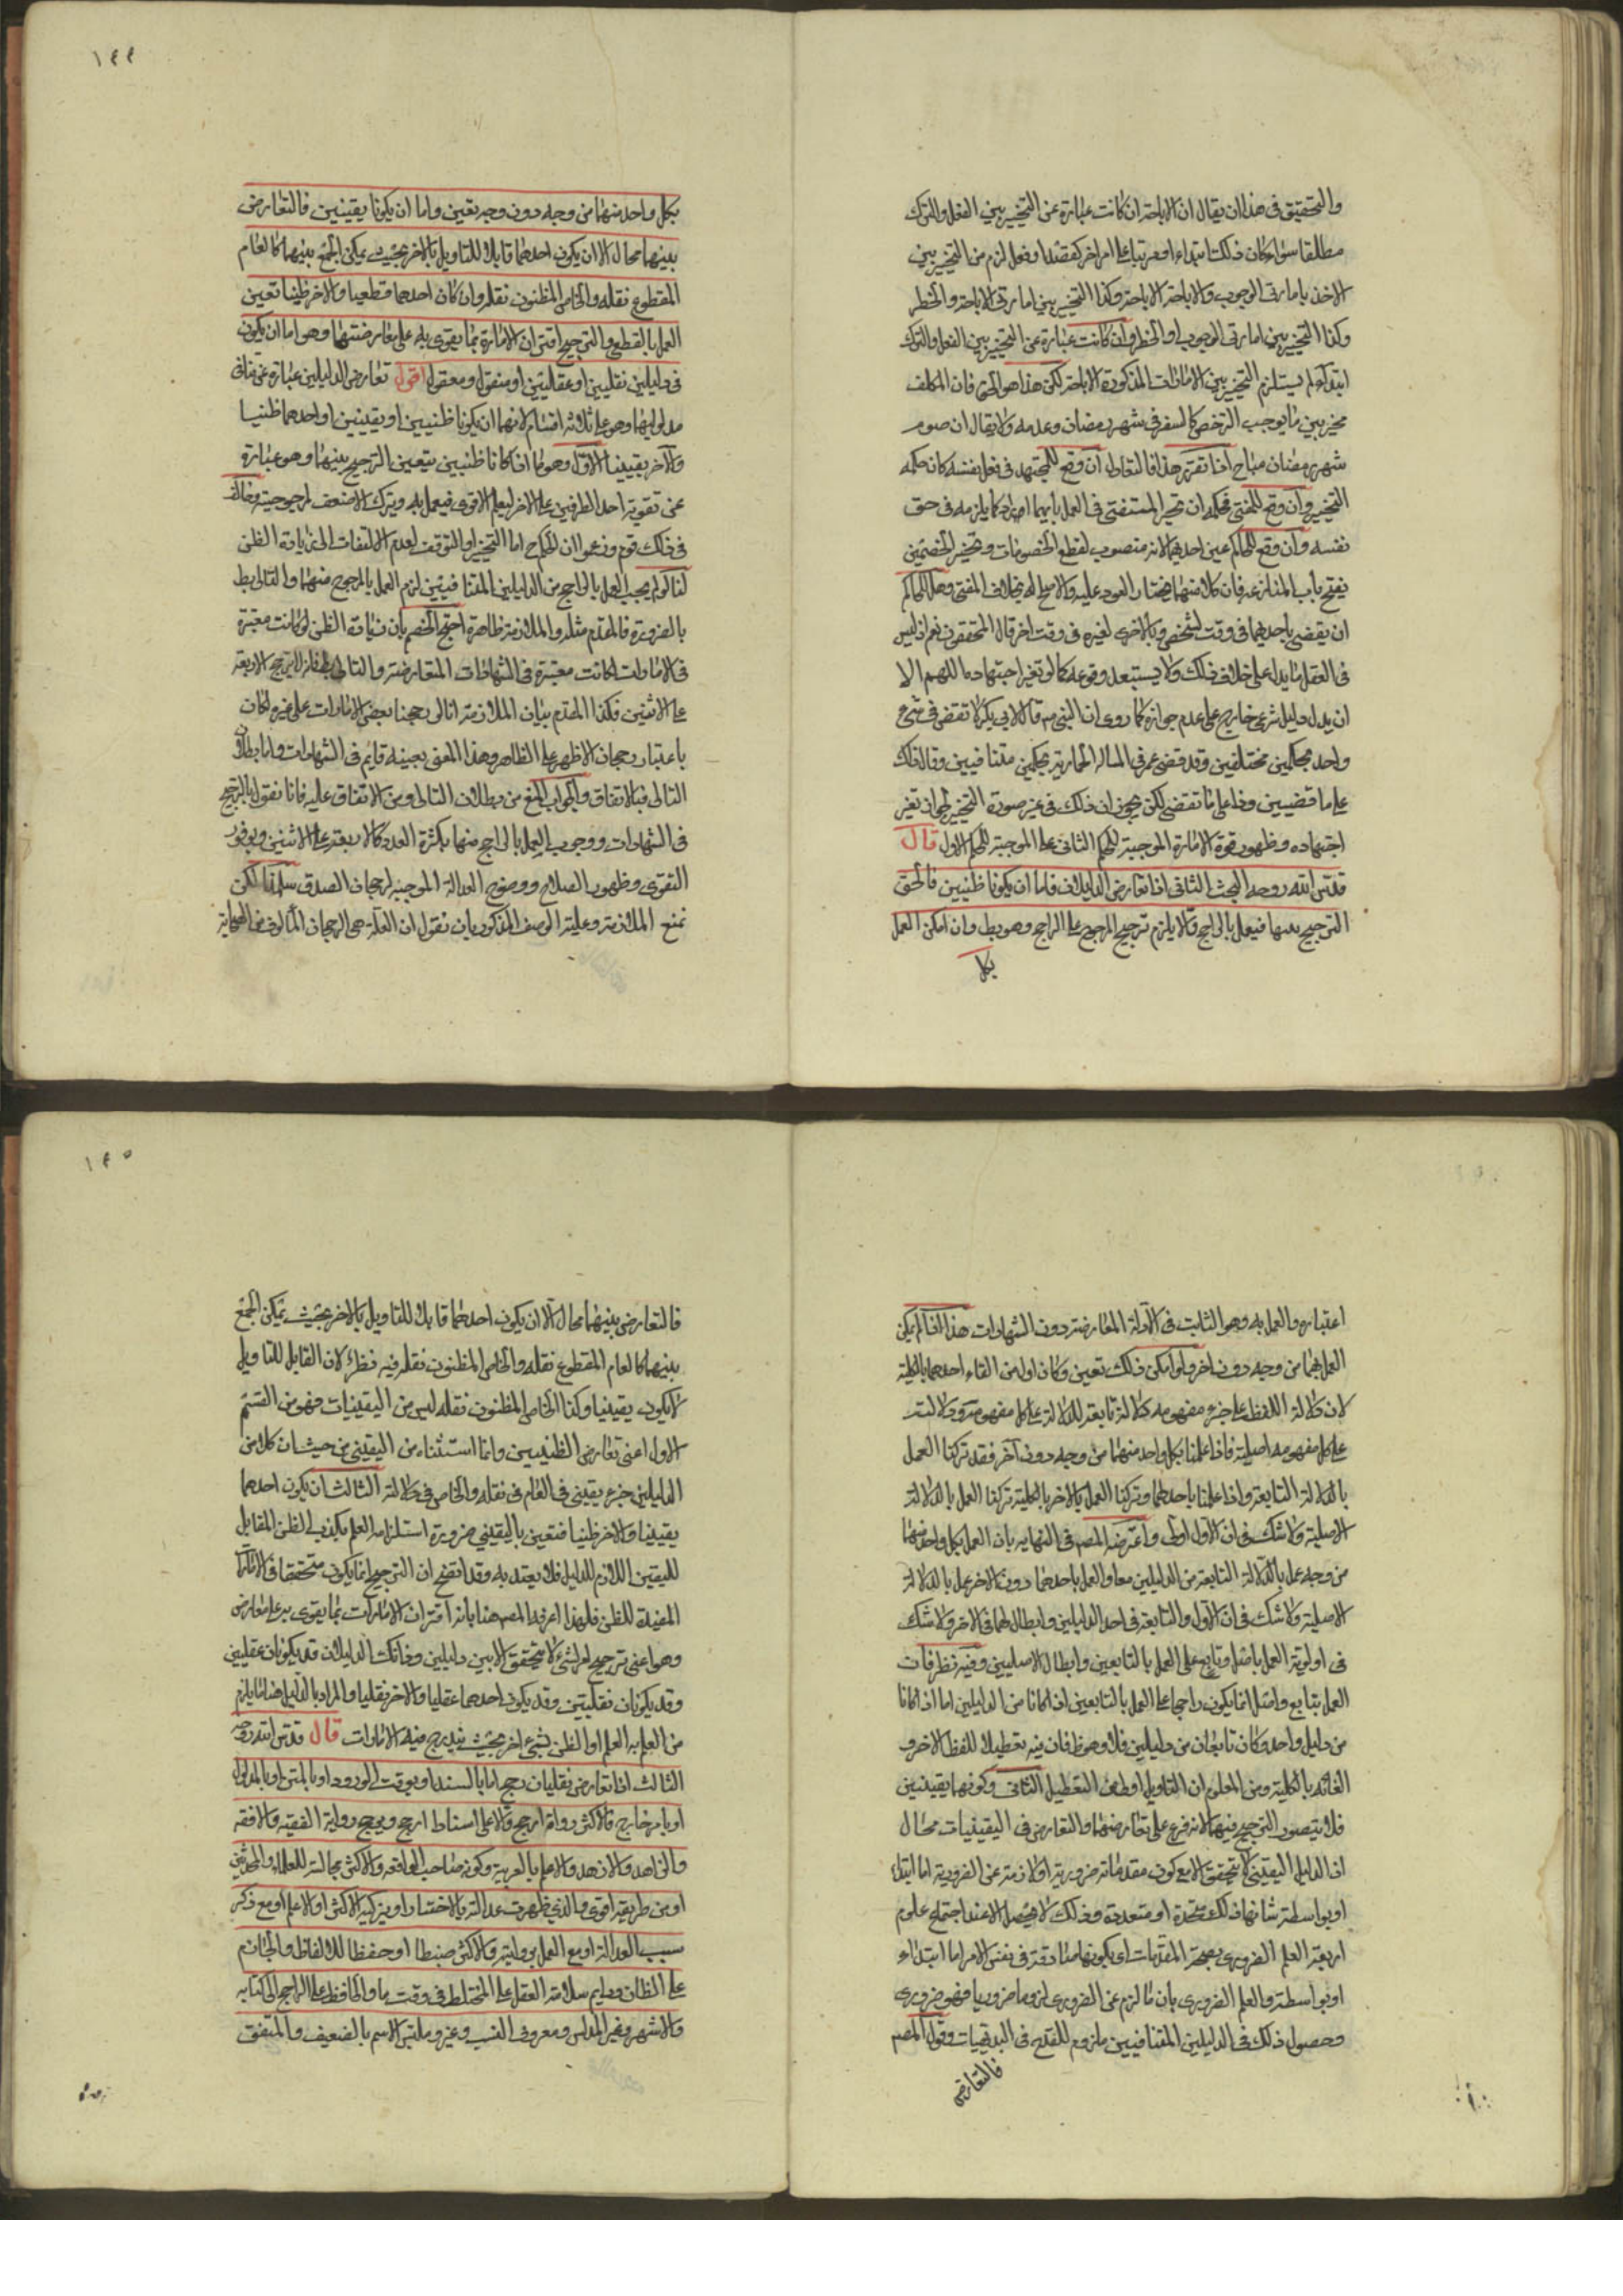 والتحقيق فى هذا ان يقال ان الاباحة ان كانت عبارة عن التخيير بين الفعل والترك
مطلقا سواء كان ذلك ابتداء او مرتبا على امر اخر كقصد او فعل لزم من التخيير بين
الاخذ بامارتى الوجوب والاباحة الاباحة وكذا التخيير بين امارتى الاباحة والحظر
وكذا التخيير بين امارتى الوجوب او الحظر وان كانت عبارة عن التخيير بين الفعل والترك
ابتداء لم يستلزم التخيير بين الامارات المذكورة الاباحة لكن هذا هو الحق فان المكلف
مخير بين ما يوجب الترخص كالسفر فى شهر رمضان وعدمه ولا يقال ان صوم
شهر رمضان مباح اذا تقرر هذا فالتعادل ان وقع للمجتهد فى فعل نفسه كان حكمه
التخيير وان وقع للمفتى فحكمه ان يخير المستفتى فى العمل بايهما اراد كما يلزمه فى حق
نفسه وان وقع للحاكم عين احدهما لانه منصوب لقطع الخصومات وتخيير الخصمين
يفتح باب المنازعة فان كلا منهما يختار العود عليه والاصلح له بخلاف المفتى وهل للحاكم
ان يقضى باحدهما فى وقت لشخص وبالاخرى لغيره فى وقت اخر قال المحققون نعم اذ ليس
فى العقل ما يدل على خلاف ذلك ولا يستبعد وقوعه كما لو تغير اجتهاده اللهم الا
ان يدل دليل شرعى خارج على عدم جوازه كما روى ان النبى ص قال لابى بكر لا تقض فى شىء
واحد بحكمين مختلفين وقد قضى عمر فى المسالة الحمارية بحكمين متنافيين وقال ذلك
على ما قضيين وذا على ما نقضى لكن يجوز ان ذلك فى غير صورة التخيير لجواز تغير
اجتهاده وظهور قوة الامارة الموجبة للحكم الثانى على الموجبة للحكم الاول قال
قدس الله روحه البحث الثانى اذا تعارض الدليلان فاما ان يكونا ظنيين فالحق
الترجيح بينهما فيعمل بالراجح والا يلزم ترجيح المرجوح على الراجح وهو بط وان امكن العمل
بكل
١٤٤
بكل واحد منهما من وجه دون وجه تعين واما ان يكونا يقينيين فالتعارض
بينهما محال الا ان يكون احدهما قابلا للتاويل بالاخر بحيث يمكن الجمع بينهما كالعام
المقطوع نقله والخاص المظنون نقله وان كان احدهما قطعيا والاخر ظنيا تعين
العمل بالقطعى والترجيح اقتران الامارة بما يقوى به على معارضتها وهو اما ان يكون
فى دليلين نقليين او عقليين او منقول ومعقول اقول تعارض الدليلين عبارة عن تنافى
مدلوليهما وهو على ثلاثة اقسام لانهما اما ان يكونا ظنيين او يقينيين او احدهما ظنيا
والاخر يقينيا الاول وهو ما اذا كانا ظنيين يتعين الترجيح بينهما وهو عبارة
عن تقوية احد الطرفين على الاخر ليعلم الاقوى فيعمل به ويترك الاضعف لمرجوحيته وخالف
فى ذلك قوم وزعموا ان الحكم اما التخيير او التوقف لعدم الالتفات الى زيادة الظن
لنا لو لم يجب العمل بالراجح من الدليلين المتنافيين لزم العمل بالمرجوح منهما والتالى بط
بالضرورة فالمقدم مثله والملازمة ظاهرة احتج الخصم بان زيادة الظن لو كانت معتبرة
فى الامارات لكانت معتبرة فى الشهادات المتعارضة والتالى بط فانه لا يترجح الاربعة
على الاثنين فكذا المقدم بيان الملازمة انا لو رجحنا بعض الامارات على غيره لكان
باعتبار رجحان الاظهر على الظاهر وهذا المعنى بعينه قايم فى الشهادات واما بطلان
التالى فبالاتفاق والجواب المنع من بطلان التالى ومن الاتفاق عليه فانا نقول بالترجيح
فى الشهادات ووجوب العمل بالراجح منها بكثرة العدد كالاربعة على الاثنين وبوفور
التقوى وظهور الصلاح ووضوح العدالة الموجبة لرجحان الصدق سلمنا لكن
نمنع الملازمة وعلية الوصف المذكور بان نقول ان العلة هى الرجحان المألوف من الصحابة
اعتباره والعمل به وهو الثابت فى الادلة المعارضة دون الشهادات هذا اذا لم يمكن
العمل بهما من وجه دون اخر ولو امكن ذلك تعين وكان اولى من الغاء احدهما بالكلية
لان دلالة اللفظ على جزء مفهومه دلالة تابعة للدلالة على كل مفهومه ودلالته
على كل مفهومه اصلية فاذا عملنا بكل واحد منهما من وجه دون آخر فقد تركنا العمل
بالدلالة التابعة واذا عملنا باحدهما وتركنا العمل بالاخر بالكلية تركنا العمل بالدلالة
الاصلية ولا شك فى ان الاول اولى واعترضه المصنف فى النهاية بان العمل بكل واحد منهما
من وجه عمل بالدلالة التابعة من الدليلين معا والعمل باحدهما دون الاخر عمل بالدلالة
الاصلية ولا شك فى ان الاول والتابعة فى احد الدليلين وابطال لهما فى الاخر ولا شك
فى اولوية العمل باصل وتابع على العمل بالتابعين وابطال الاصليين وفيه نظر فان
العمل بتابع واصل انما يكون راجحا على العمل بالتابعين اذا كانا من الدليلين اما اذا كانا
من دليل واحد وكان تابعان من دليلين فلا وهو ظ فان فيه تعطيلا للفظ الاخر و
الغائه بالكلية ومن المعلوم ان التاويل اولى من التعطيل الثانى وكونهما يقينيين
فلا يتصور الترجيح فيهما لانه فرع على تعارضهما والتعارض فى اليقينيات محال
اذ الدليل اليقينى لا يتحقق الا مع كون مقدماته ضرورية او لازمة عن الضرورية اما ابتداء
او بواسطة شانها ذلك متحدة او متعددة وذلك لا يحصل الا عند اجتماع علوم
اربعة العلم الضرورى بصحة المقدمات اى بكونها صادقة فى نفس الامر اما ابتداء
او بواسطة والعلم الضرورى بان ما لزم عن الضرورى لزوما ضروريا فهو ضرورى
وحصول ذلك فى الدليلين المتنافيين ملزوم للقدح فى البديهيات وقول المصنف
فالتعارض
١٤٥
فالتعارض بينهما محال الا ان يكون احدهما قابلا للتاويل بالاخر بحيث يمكن الجمع
بينهما كالعام المقطوع نقله والخاص المظنون نقله فيه نظر لان القابل للتاويل
لا يكون يقينيا وكذا الخاص المظنون نقله ليس من اليقينيات فهو من القسم
الاول اعنى تعارض الظنيين وانما استثناه من اليقينى من حيث ان كلا من
الدليلين جزء يقينى فى العام فى نقله والخاص فى دلالته الثالث ان يكون احدهما
يقينيا والاخر ظنيا فتعين باليقينى ضرورة استلزامه العلم بكذب الظن المقابل
لليقين اللازم للدليل فلا يعتد به وقد اتضح ان الترجيح انما يكون متحققا فى الامارات
المفيدة للظن فلهذا عرفه المصنف هنا بانه اقتران الامارات بما يقوى به على معارض
وهو اعنى ترجيح امر لشىء لا يتحقق الا بين دليلين وذانك الدليلان قد يكونان عقليين
وقد يكونان نقليين وقد يكون احدهما عقليا والاخر نقليا والمراد بالدليل هنا ما يلزم
من العلم به العلم او الظن بشىء اخر بحيث يندرج فيه الامارات قال قدس الله روحه
الثالث اذا تعارض نقليان رجح اما بالسند او بوقت الورود او بالمتن او بالمدلول
او بامر خارج فالاكثر رواة ارجح والاعلى اسنادا ارجح ويرجح رواية الفقيه والافقه
والزاهد والازهد والاعلم بالعربية وكونه صاحب الواقعة والاكثر مجالسة للعلماء والمحدثين
او من طريقته اقوى والذى ظهرت عدالته بالاختبار او بتزكية الاكثر او الاعلم او مع ذكر
سبب العدالة او مع العمل بروايته والاكثر ضبطا او حفظا للالفاظ والجازم
على الظان ودايم سلامة العقل على المختلط فى وقت ما والحافظ على الراجع الى كتابه
والاشهر وغير المدلس ومعروف النسب وغير ملتبس الاسم بالضعيف والمتفق